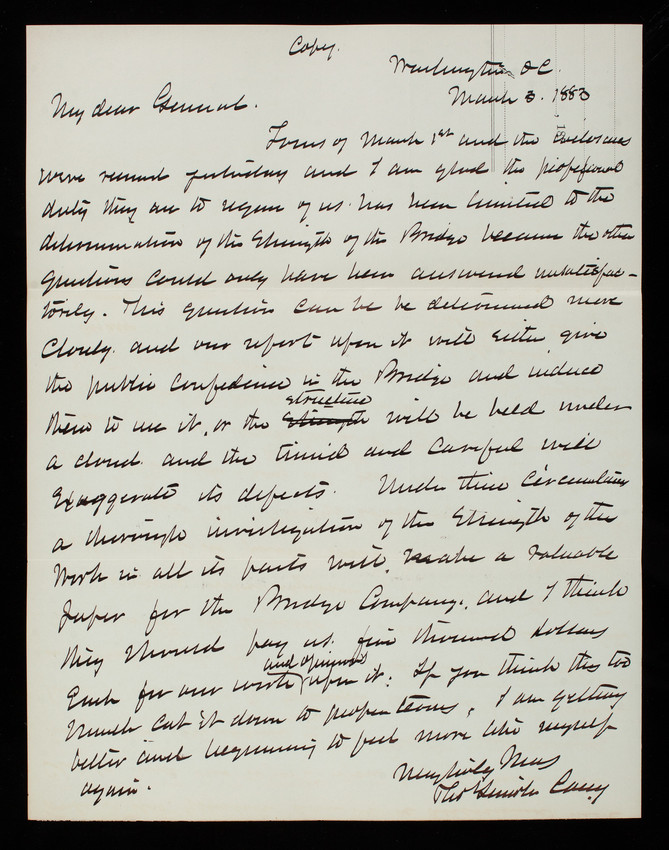 Copy.
Washington D.C.
March 3. 1883
My dear General.
Yours of March 1st and the Enclosures
were received yesterday and I am glad the professional
duty they are to require of us has been limited to the
determination of the Strength of the Bridge because the other
questions could only have been answered unsatisfac-
torily. This question can be be determined more
closely. and our report upon it will either give
the public confidence in the Bridge and induce
them to use it, or the Strength structure will be held under
a cloud. and the timid and careful will
Exaggerate its defects. Under these Circumstances
a thorough investigation of the Strength of the
Work in all its parts will, make a valuable
paper for the Bridge Company, and I think
they should pay us. five thousand dollars
Each for our work and opinions upon it: If you think this too
much cut it down to proper terms, I am getting
better and beginning to feel more like myself
again.
Very truly Yours
Thos Lincoln Casey